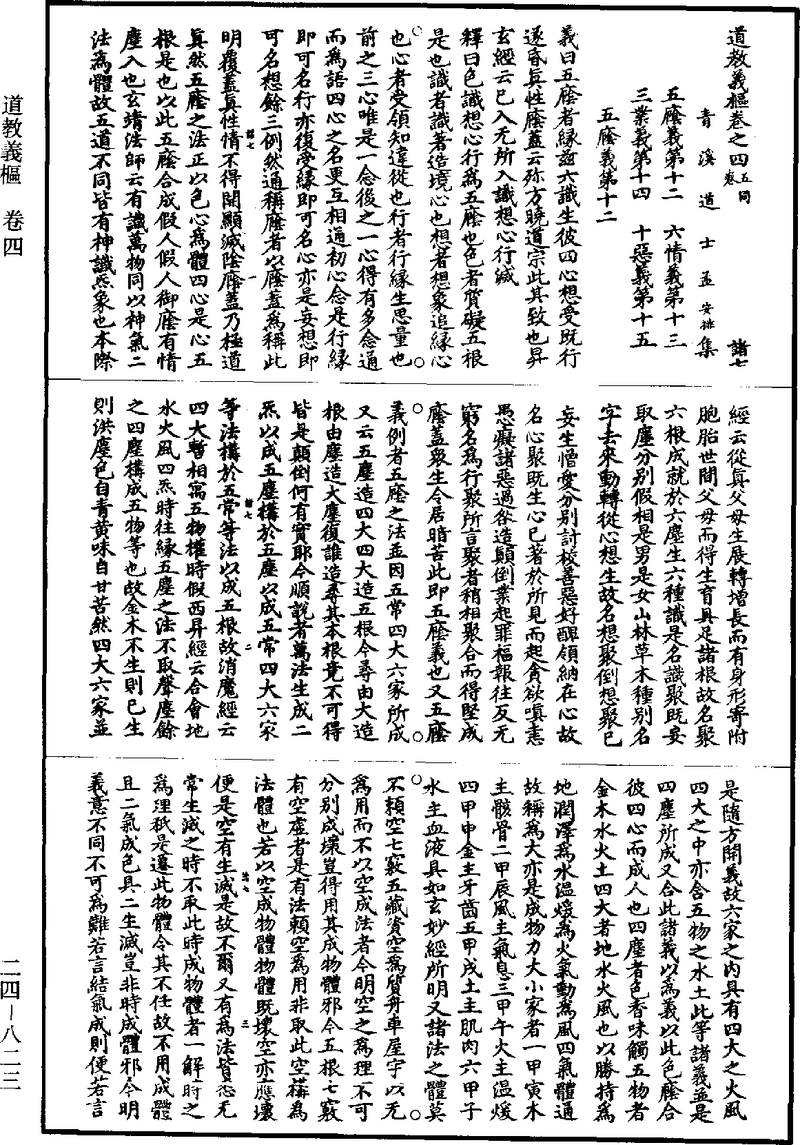 道教義樞卷之四五同卷 諸七
青溪道士孟安排集
五廕義第十二 六情義第十三
三業義第十四 十惡義第十五
五廕義第十二
義曰五廕者緣茲六識生彼四心想受既行
遂昏真性廕蓋云弥方曉道宗此其致也昇
玄經云已入无所入識想心行滅
釋曰色識想心行為五廕也色者質礙五根
是也識者識著造境心也想者想象追緣心
也心者受領知違從也行者行緣生思量也
前之三心唯是一念後之一心得有多念通
而為語四心之名更互相通初心念是行緣
即可名行亦復受緣即可名心亦是妄想即
可名想餘三例然通稱廕者以廕蓋為稱此
明覆蓋真性情不得開顯滅陰廕蓋乃極道
真然五廕之法正以色心為體四心是心五
根是也以此五廕合成假人假人御廕有情
塵入也玄靖法師云有識萬物同以神氣二
法為體故五道不同皆有神識炁象也本際
經云從真父母生展轉增長而有身形寄附
胞胎世間父母而得生育具足諸根故名聚
六根成就於六塵生六種識是名識聚既妄
取塵分別假相是男是女山林草木種別名
字去來動轉從心想生故名想聚倒想聚已
妄生憎愛分別計校善惡好醜領納在心故
名心聚既生心已著於所見而起貪欲嗔恚
愚癡諸惡過咎造顛倒業起罪福報往反无
窮名為行聚所言聚者稍相聚合而得堅成
廕蓋眾生令居暗苦此即五廕義也又五廕
義例者五廕之法並因五常四大六家所成
又云五塵造四大四大造五根今尋由大造
根由塵造大塵復誰造尋其本根竟不可得
皆是顛倒何有實耶今順說者萬法生成二
炁以成五塵構於五塵以成五常四大六家
等法構於五常等法以成五根故消魔經云
四大暫相寓五物權時假西昇經云合會地
水火風四炁時往緣五塵之法不取聲塵餘
之四塵構成五物等也故金木不生則已生
則洪塵色自青黃味自甘苦然四大六家並
是隨方開義故六家之內具有四大之火風
四大之中亦含五物之水土此等諸義並是
四塵所成又合此諸義以為義以此色廕合
彼四心而成人也四塵者色香味觸五物者
金木水火土四大者地水火風也以勝持為
地潤澤為水溫煖為火氣動為風四氣體通
故稱為大亦是成物力大小家者一甲寅木
主骸骨二甲辰風主氣息三甲午火主溫煖
四甲申金主牙齒五甲戌土主肌肉六甲子
水主血液具如玄妙經所明又諸法之體莫
不賴空七竅五藏資空為質舟車屋宇以无
為用而不以空成法者今明空之為理不可
分別成壞豈得用其成物體邪今五根七竅
有空虛者是有法賴空為用非取此空構為
法體也若以空成物體物體既壞空亦應壞
便是空有生滅是故不爾又有為法皆悉无
常生滅之時不取此時成物體者一解時之
為理秖是遷此物體令其不住故不用成體
且二氣成色具二生滅豈非時成體邪今明
義意不同不可為難若言結氣成則便若言
道教義樞 卷四
二四—八二三